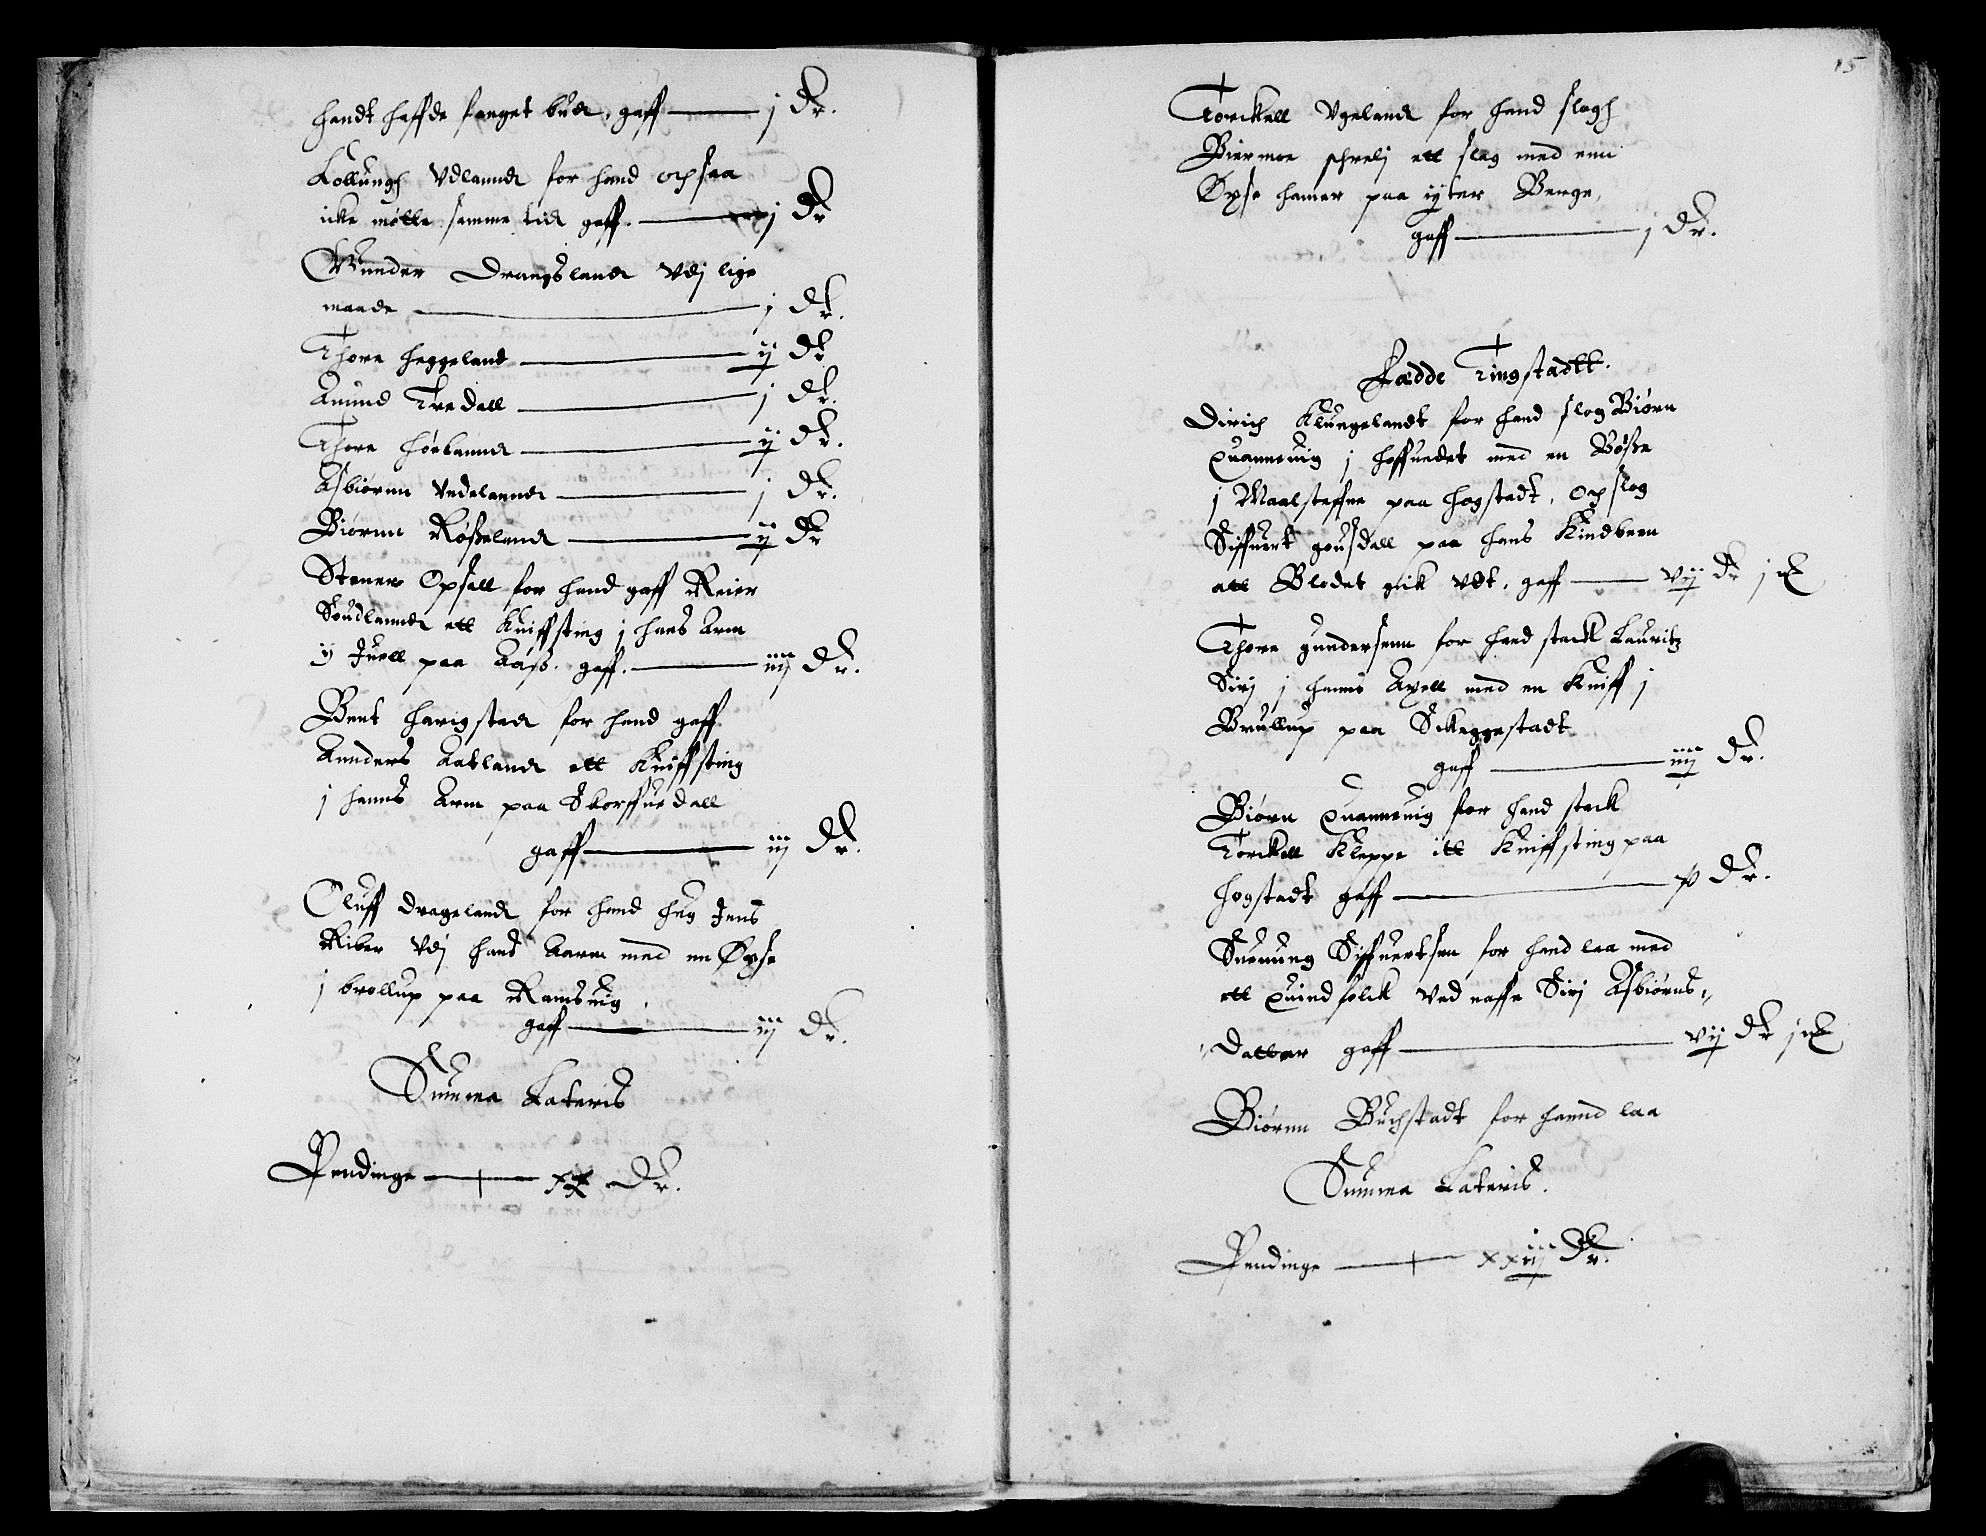 handt haffde fanget budt, gaff — j dr.
Lollungh Udlanndt for hand ochsaa
icke møtte samme tid gaff. — j dr
Gunder Drangslandt vdj lige
maade — j dr.
Thore Heggeland — ij dr
Amund Tredall — j dr.
Thore Hørlanndt — ij dr.
Asbiørnn Vedelanndt — j dr.
Biørnn Røßelandt — ij dr
Stener Opsall for hand gaff Reier
Soudlanndt ett Kniffsting j hans Arm
ij Juell paa Aaß. gaff. — iiij dr.
Bent Harigstadt for hand gaff
Annders Aatlandt ett Kniffsting
j hanns Arm paa Skorffuedall
gaff — iij dr.
Oluff Dragelandt for hand hug Jens
Riber vdj hans Aarm med en Øxse
j brøllup paa Ramsuig.
gaff — iij dr.
Summa Lateris
Pendinge — xx dr.
15
Torckell Ugelandt for hand slogh
Biermoe ett slag med enn
Øxse hamer paa ytter Berge,
gaff — j dr.
Fædde Tingstadtt.
Dirich Klungelandt for hand slog Biørn
Quanneuig j hoffuedet med en Bøsse
j Maalsteffne paa Hogstadt, och slog
Siffuert gousdall paa hans Kindbeen
att Blodet gik udt. gaff — vij dr j ort
Thore gundersenn for hand stack Lauritz
Sirj j hanns Axell med en Kniff j
Brullup paa Skeggestadt
gaff — iiij dr.
Biørn Quanneuig for hand stack
Torckell Kleppe itt Kniffsting paa
Hogstadt gaff — p dr.
Suenung Siffuertsen for hand laa med
ett Quindfolck ved naffn Sirj Asbiørns-
Datter gaff — vij dr j ort
Biørnn Buchstadt for hannd laa
Summa Lateris.
Pendinge — dr.